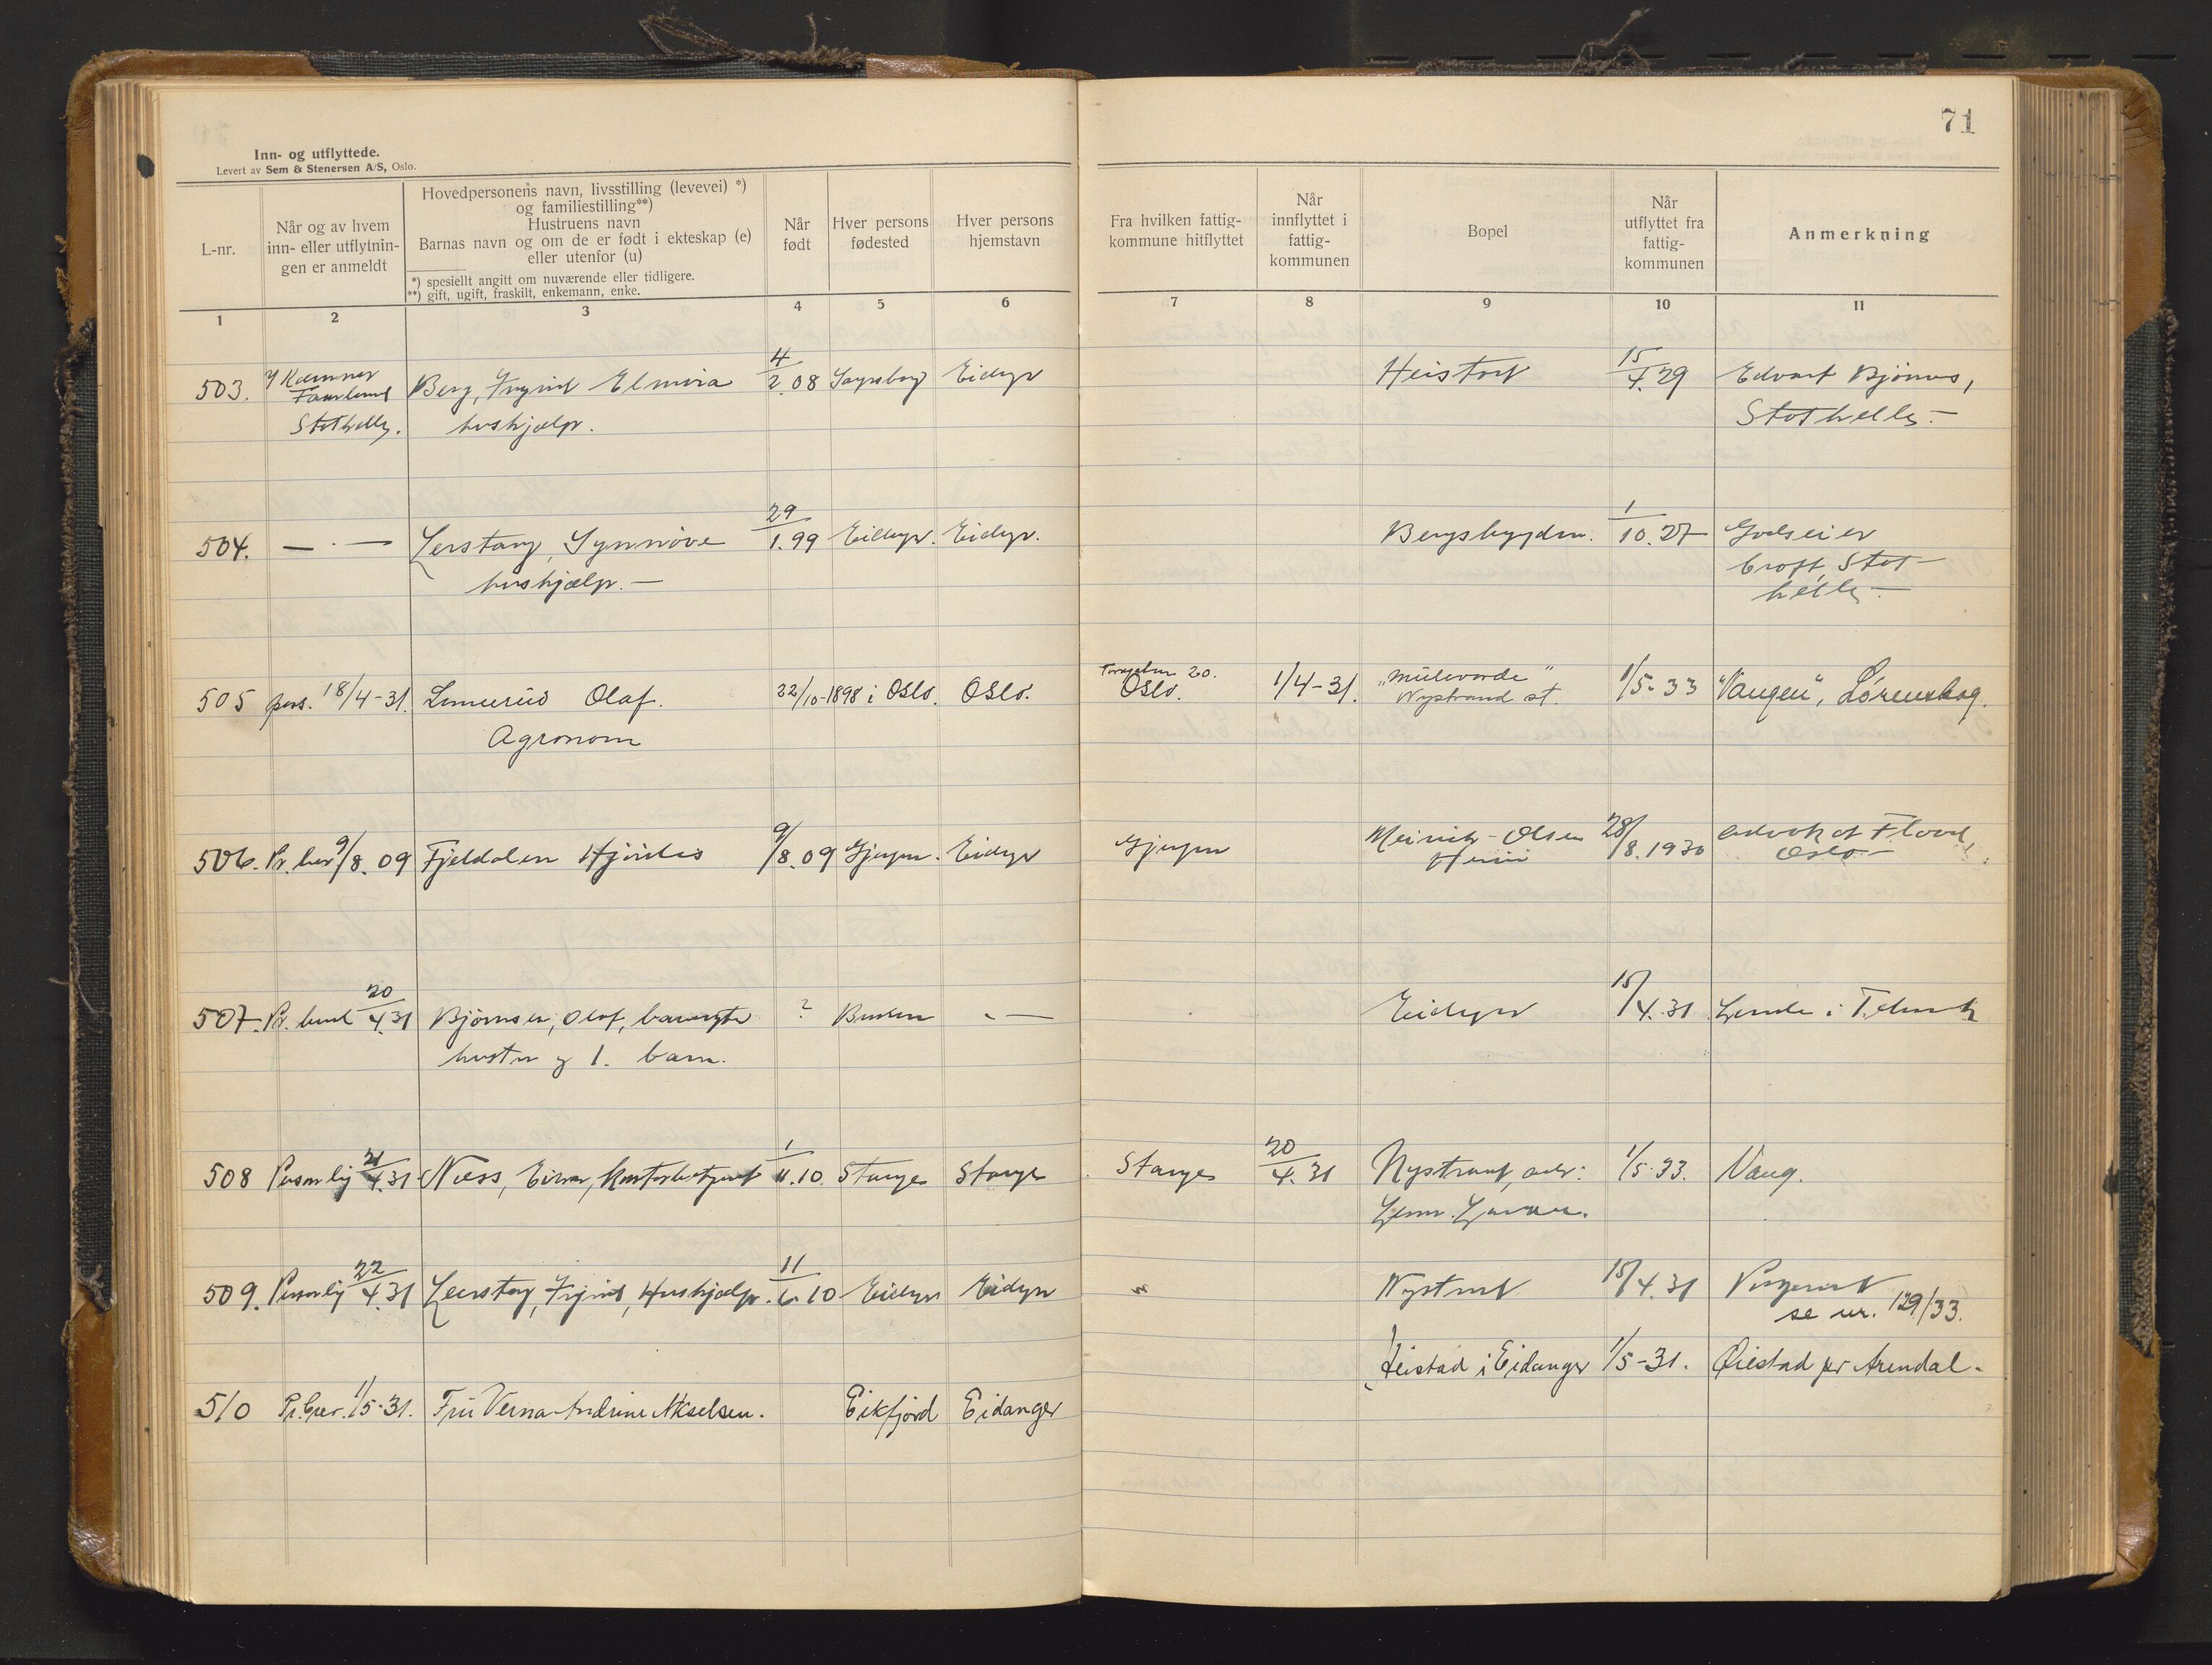 71
Inn- og utflyttede.
Levert av Sem & Stenersen A/S, Oslo.
L-nr.
Når og av hvem
inn- eller utflytnin-
gen er anmeldt
Hovedpersonens navn, livsstilling (levevei) *)
og familiestilling**)
Hustruens navn
Barnas navn og om de er født i ekteskap (e)
eller utenfor (u)
*) spesiellt angitt om nuværende eller tidligere.
**) gift, ugift, fraskilt, enkemann, enke.
Når
født
Hver persons
fødested
Hver persons
hjemstavn
Fra hvilken fattig-
kommune hitflyttet
Når
innflyttet i
fattig-
kommunen
Bopel
Når
utflyttet fra
fattig-
kommunen
Anmerkning
1 2 3 4 5 6 7 8 9 10 11
503. Berg, Ingrid Elmira 4/2.08 Eidgr Heistad 15/4.29 Edvart Bjørnes,
Stathelle. hushjælp. Stathelle.
504. — · — Lerstang, Synnøve 29/1.99 Eidgr. Eidgr. Bergsbygden. 1/10.27 Godseier
hushjælp. — Croft, Stat-
helle. —
505 pers. 18/4-31. Olaf. 22/10-1898 i Oslo. Oslo. 20.
Oslo. 1/4-31. Nystrand st. 1/5-33 "Vangen", Lørenskog.
Agronom
506. 9/8.09 Fjeldalen Hjørdis 9/8.09 Gjerpen. Eidgr Gjerpen Meinich-Olsen 28/8.1930 advokat Flood,
Oslo —
507. Pr. 20/4.31 Bjørnsen, Olaf, ? — · — Eidgr 15/4.31 Lunde i Telmark
hustru og 1. barn.
508 Personlig 21/4.31 Næss, Einar, Kontorbetjent 1/11.10 Stange Stange Stange 20/4.31 Nystrand, adr: 1/5-33. Vang.
509. Personlig 22/4.31 Leerstang, Ingrid, Hushjælp. 11/6.10 Eidgr Eidgr Nystrand 15/4.31 Porsgrund
se nr. 129/33.
Heistad i Eidanger 1/5-31. Øiestad pr Arendal.
510 1/5-31. Fru Verna Andrine Akselsen. Eikfjord Eidanger